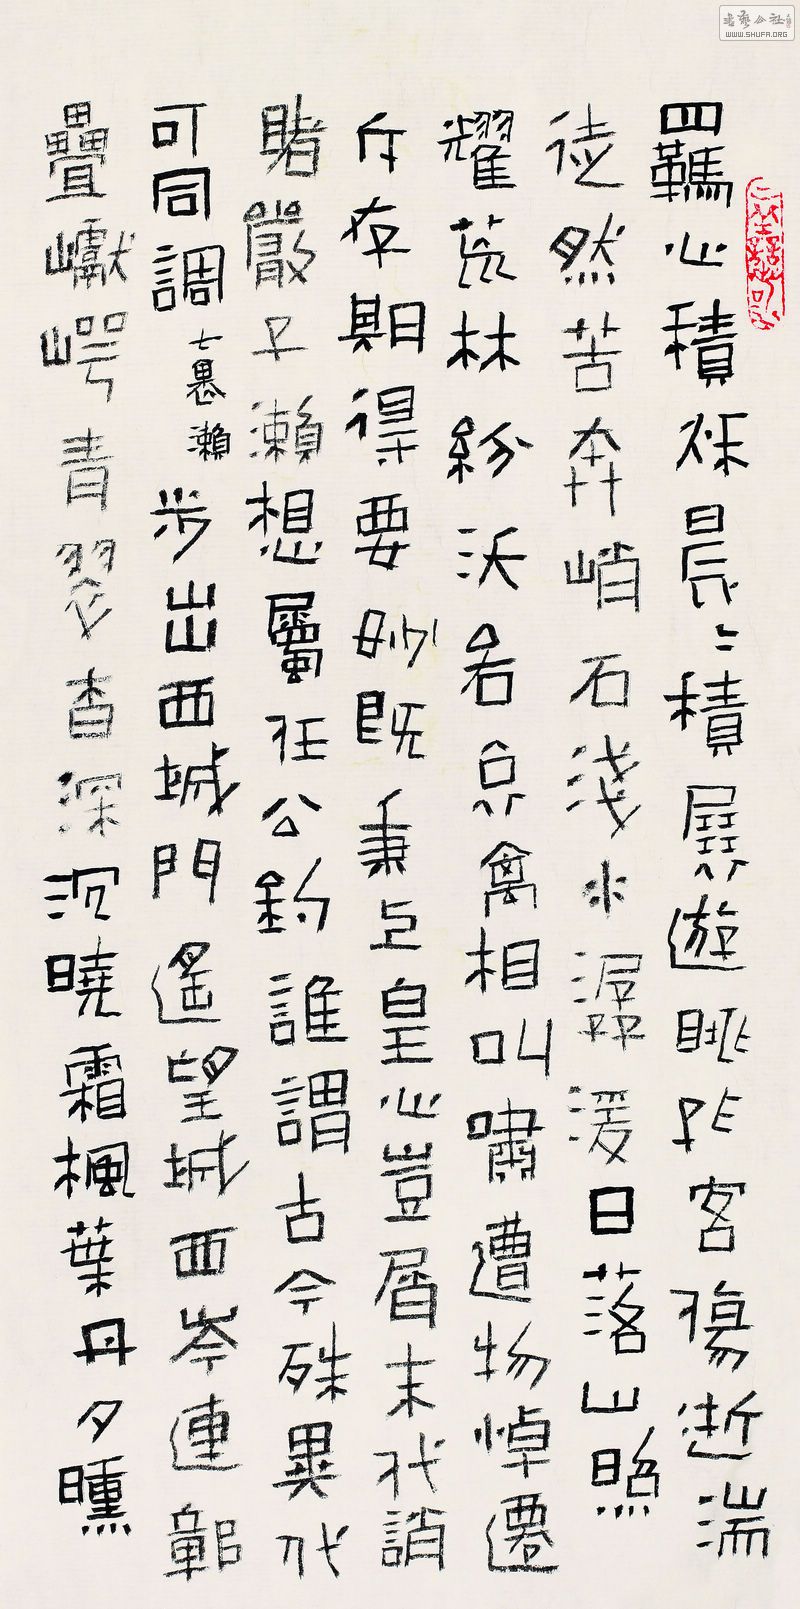 羈心積秋晨〻積展遊眺孤客傷逝湍
徒然苦奔峭石淺水潺湲日落山照
耀荒林紛沃若哀禽相叫嘯遭物悼遷
斥存期得要妙既秉上皇心豈屑末代誚
睹嚴子瀨想屬任公釣誰謂古今殊異代
可同調七瀨步出西城門遙望城西岑連鄣
疊巘崿青翠杳深沉曉霜楓葉丹夕曛
書藝公社
WWW.SHUFA.ORG